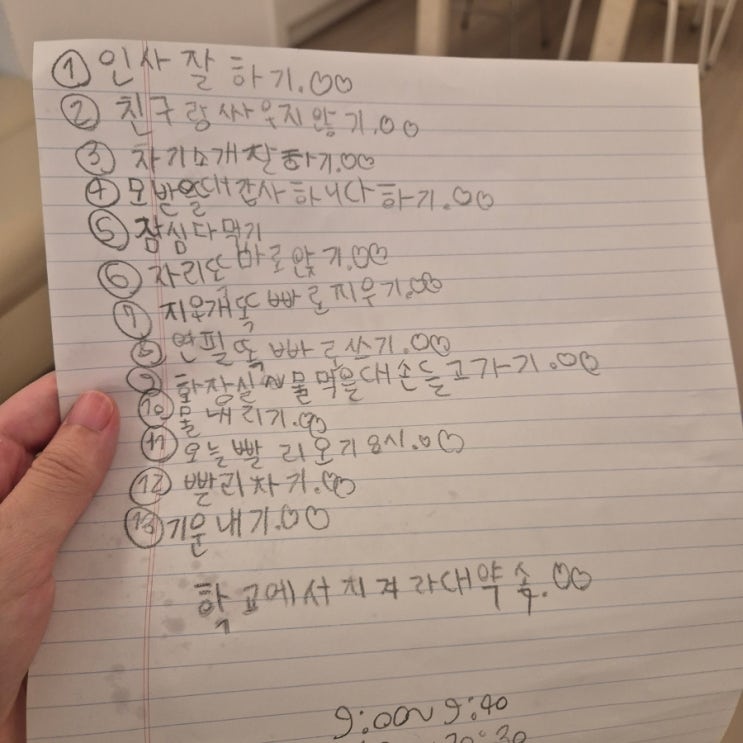 ① 인사 잘 하기.♡♡
② 친구랑 싸우지않기.♡♡
③ 자기소개잘하기.♡♡
④ 모반을대 감사하니다하기.♡♡
⑤ 잠심다먹기
⑥ 자리또 바로앉기.♡♡
⑦ 지우개똑 빠로지우기.♡♡
⑧ 연필똑 빠로쓰기.♡♡
⑨ 할장실 물먹을대손들고가기.♡♡
⑩ 물내리기.♡♡
⑪ 오늘빨 리온기8시.♡♡
⑫ 빨리자기.♡♡
⑬ 기운내기.♡♡
학교에서지켜라대약속.♡♡
9:00~9:40